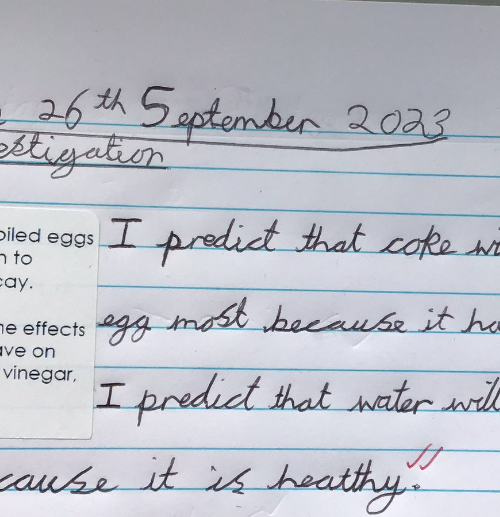 26th September 2023
estigation
oiled eggs
n to
cay.
ne effects
ave on
vinegar,
I predict that coke wi
egg most because it ha
I predict that water will
cause it is healthy.